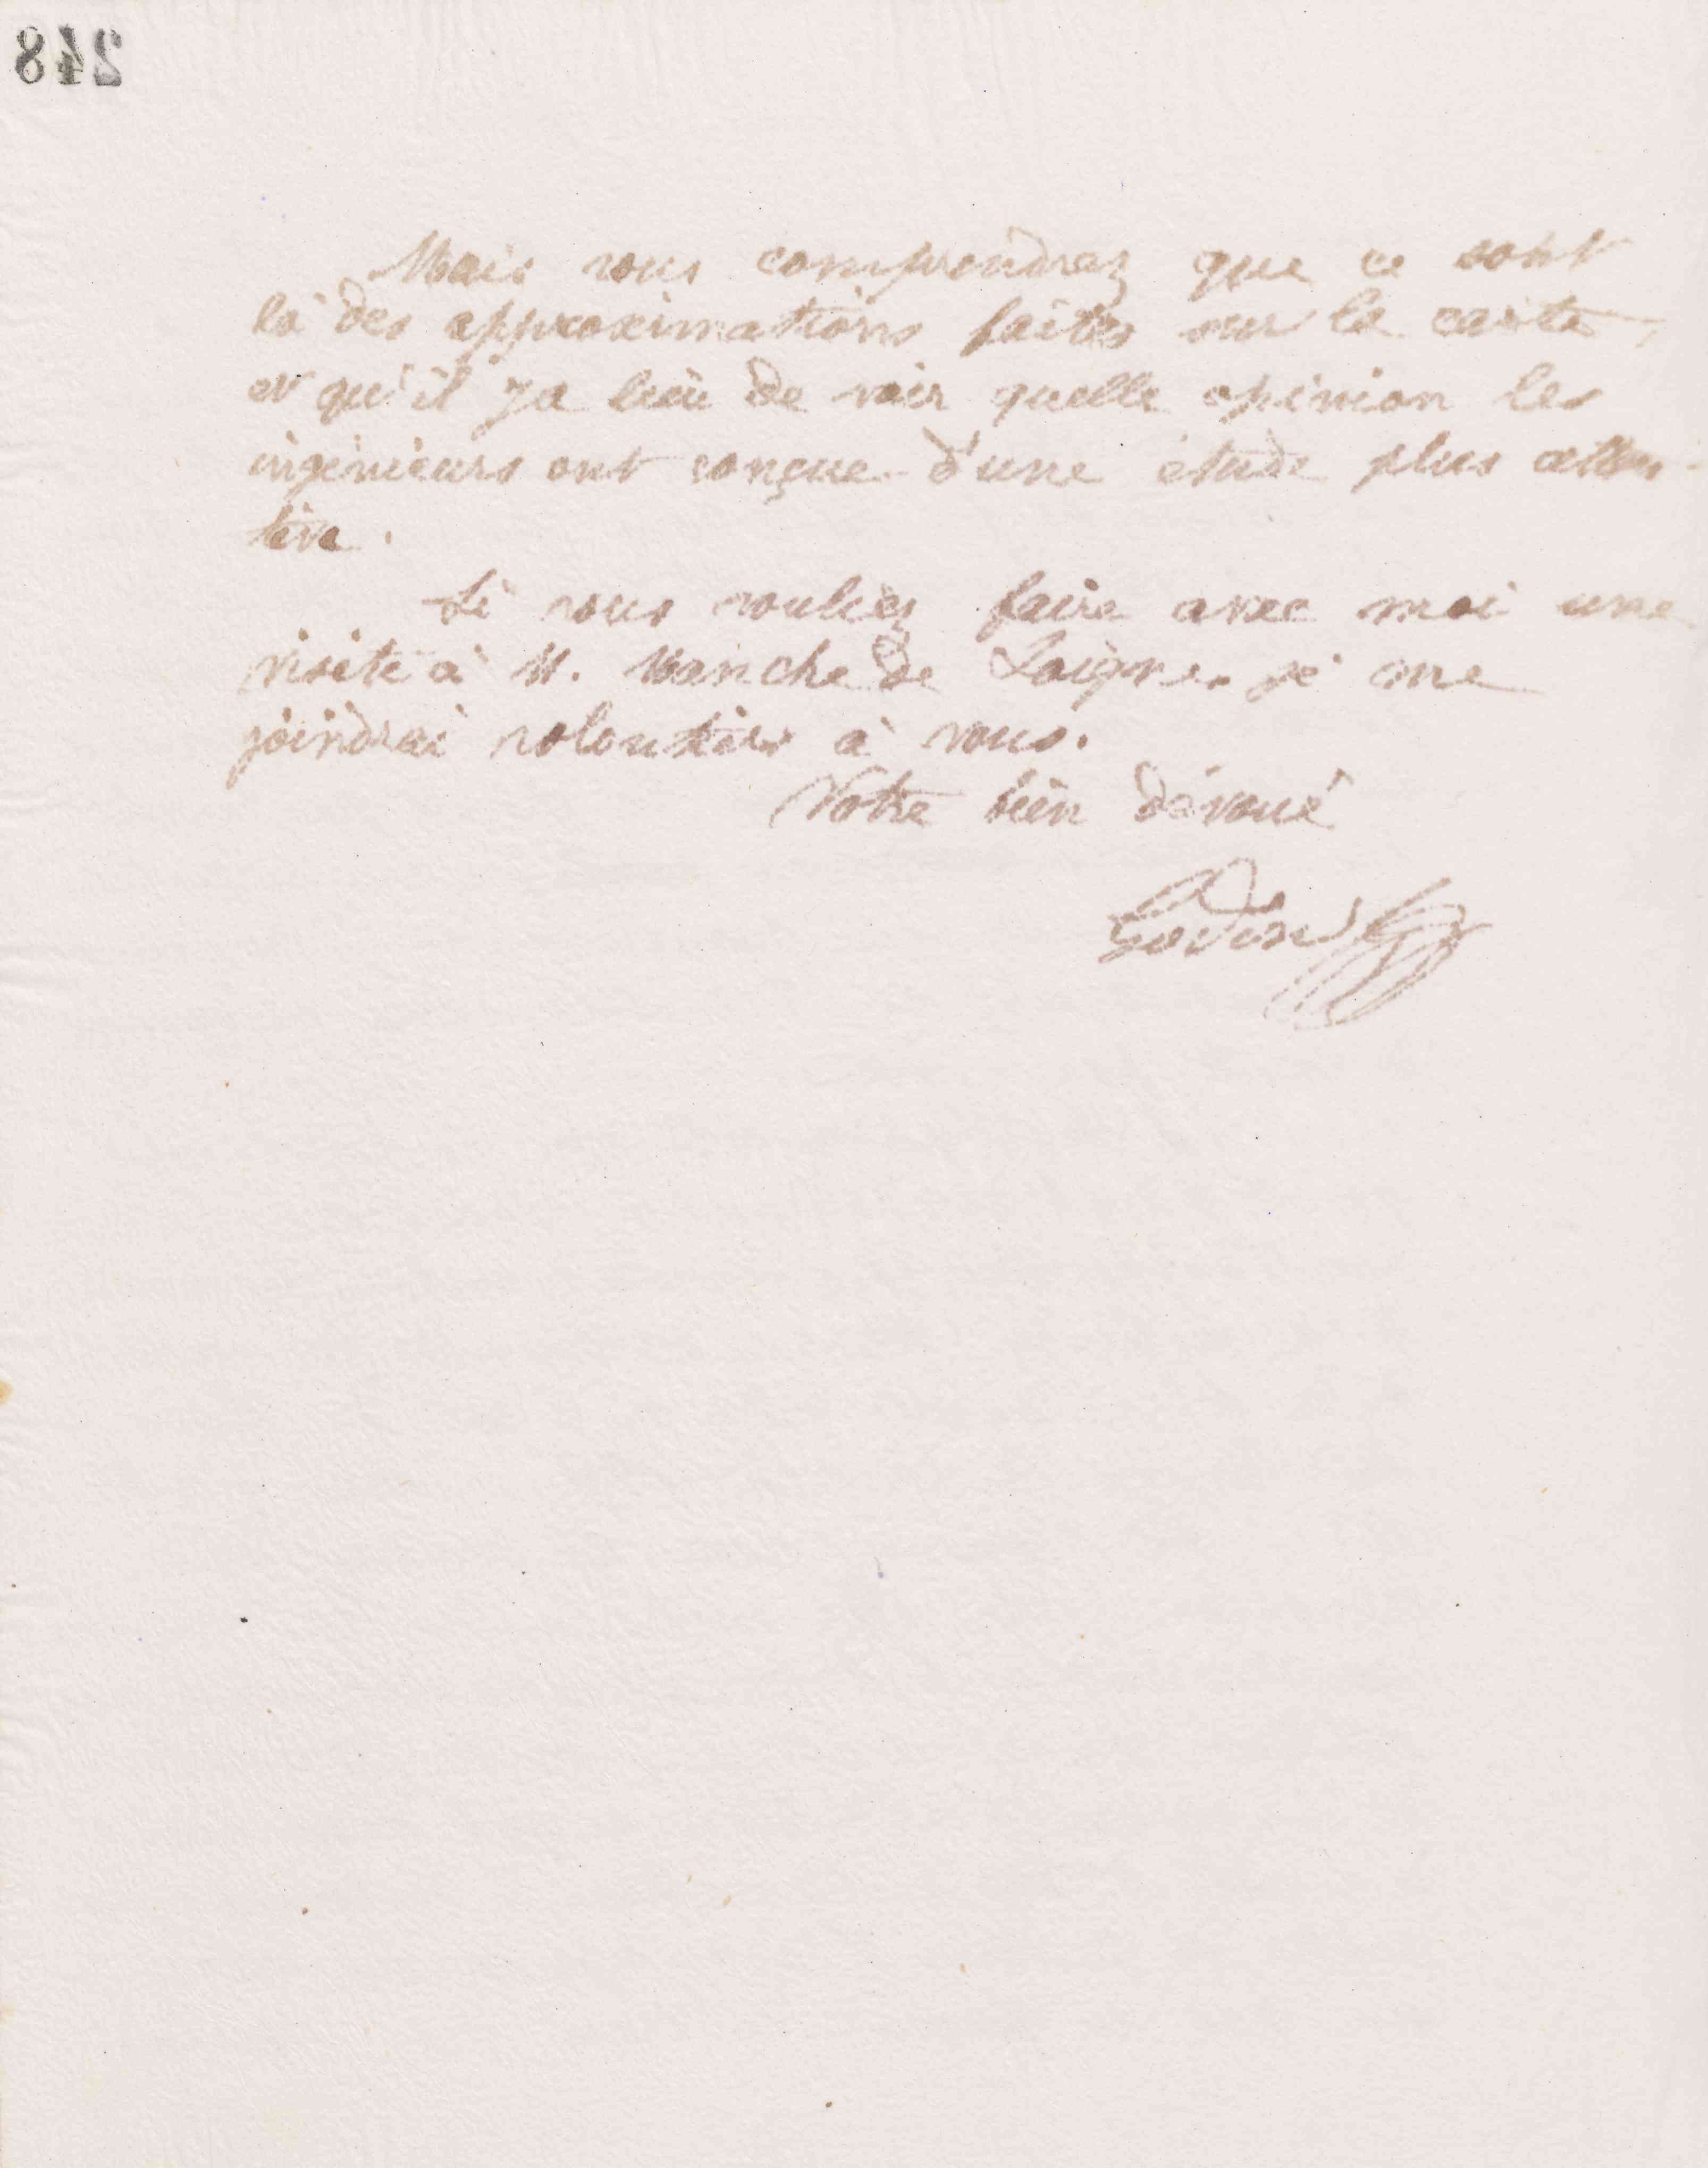 248
Mais vous comprendrez que ce sont
là des approximations faites sur la carte,
et qu'il y a lieu de voir quelle opinion les
ingénieurs ont conçue d'une étude plus atten-
tive.
Si vous vouliez faire avec moi une
visite à M. Manche de Loigne. je me
joindrai volontiers à vous.
Votre bien dévoué
Godin